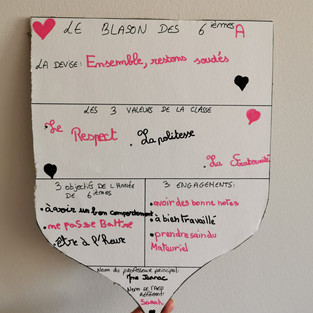 LE BLASON DES 6 ièmes A
LA DEVISE: Ensemble, restons soudés
LES 3 VALEURS DE LA CLASSE
• Le Respect
• La politesse
• La Fraternité
3 OBJECTIFS DE L'ANNÉE
DE 6 ièmes
• à avoir un bon comportement
• me pas se Battre
• être à l'heure
3 ENGAGEMENTS:
• avoir des bonne notes
• à bien travaillé
• prendre sain du
Materiel
Nom du professeur principal:
Mme
Nom de l'AED
Référent:
Sarah